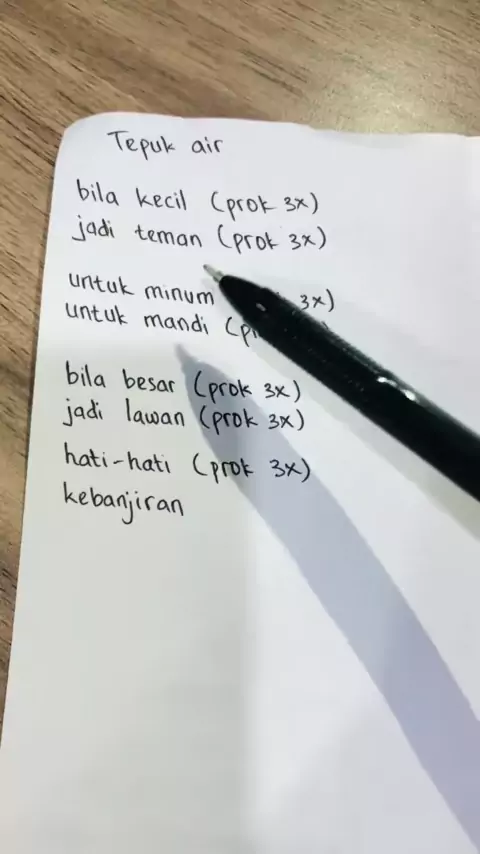 Tepuk air
bila kecil (prok 3x)
jadi teman (prok 3x)
untuk minum 3x)
untuk mandi (
bila besar (prok 3x)
jadi lawan (prok 3x)
hati-hati (prok 3x)
kebanjiran